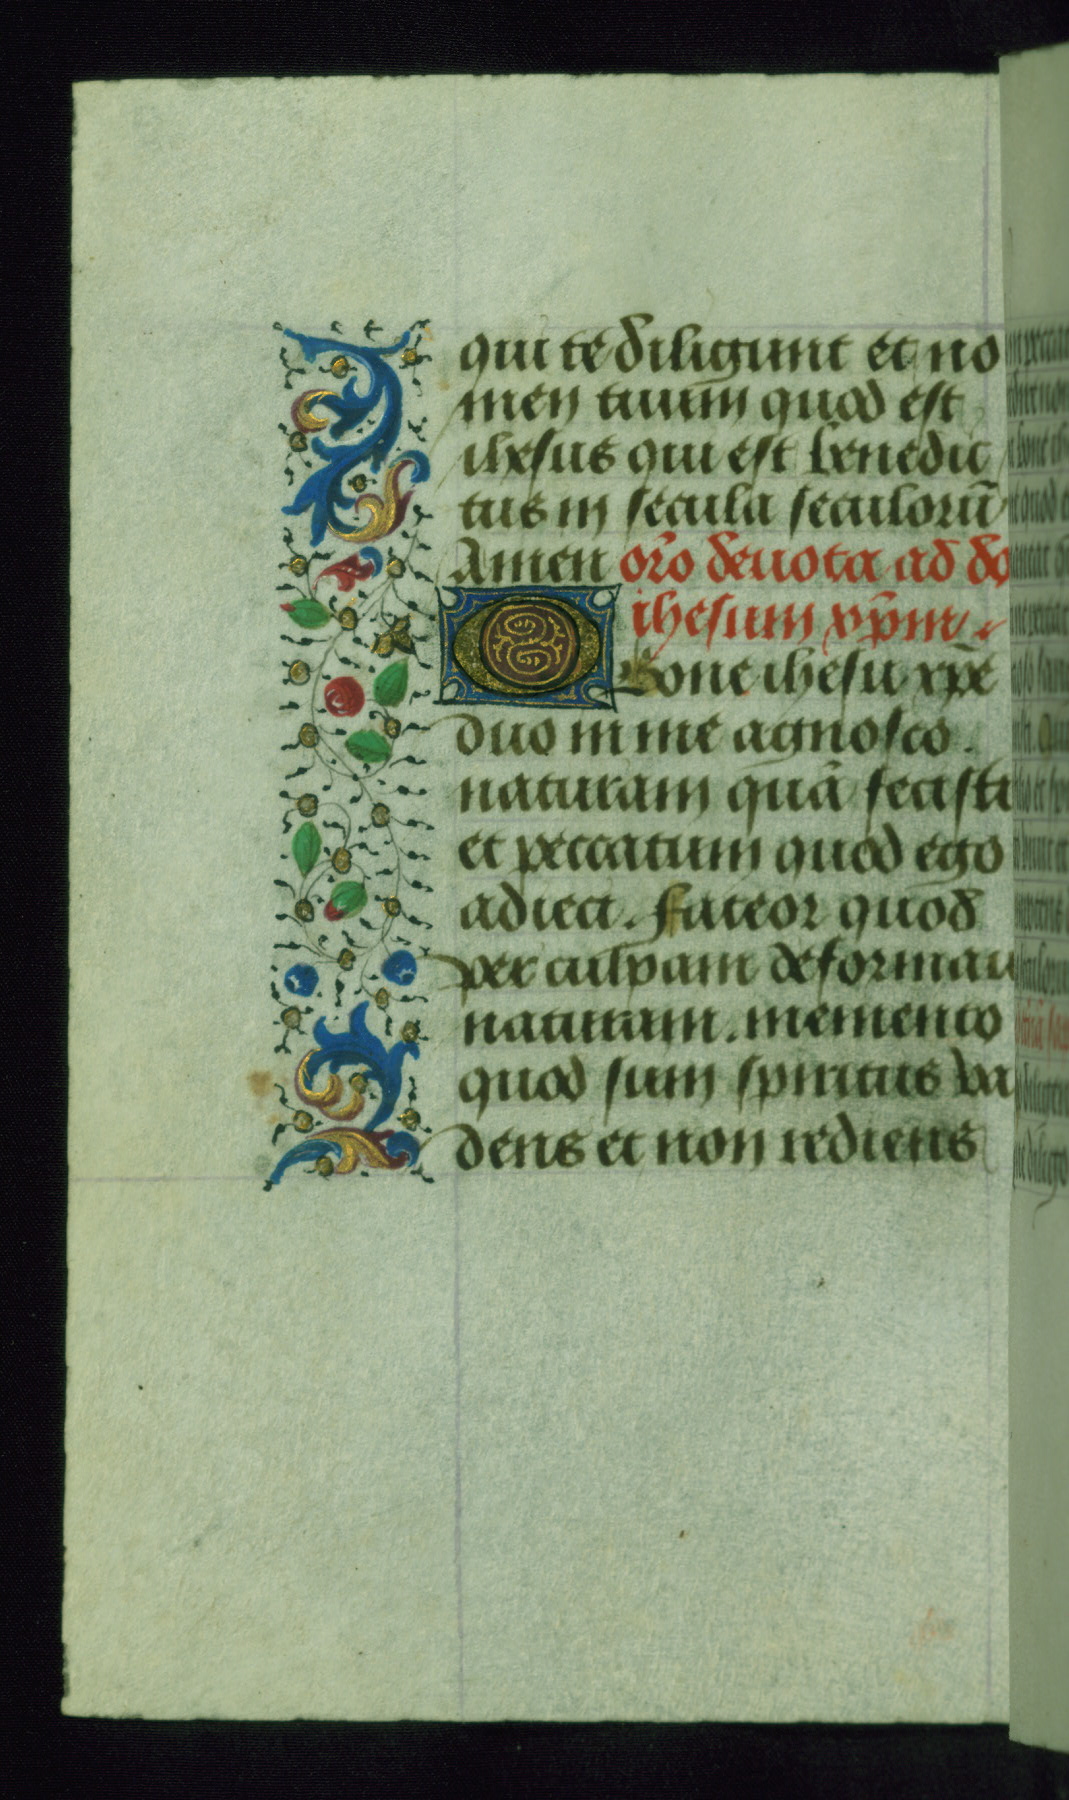 qui te diligunt et no
men tuum quod est
ihesus qui est benedic
tus in secula seculorū
Amen orō deuota ad do
ihesum xp̄m
O Bone ihesu xp̄e
duo in me agnosco.
naturam quā fecisti
et peccatum quod ego
adieci. fateor quod
per culpam deformaui
naturam. memento
quod sum spiritus va
dens et non rediens